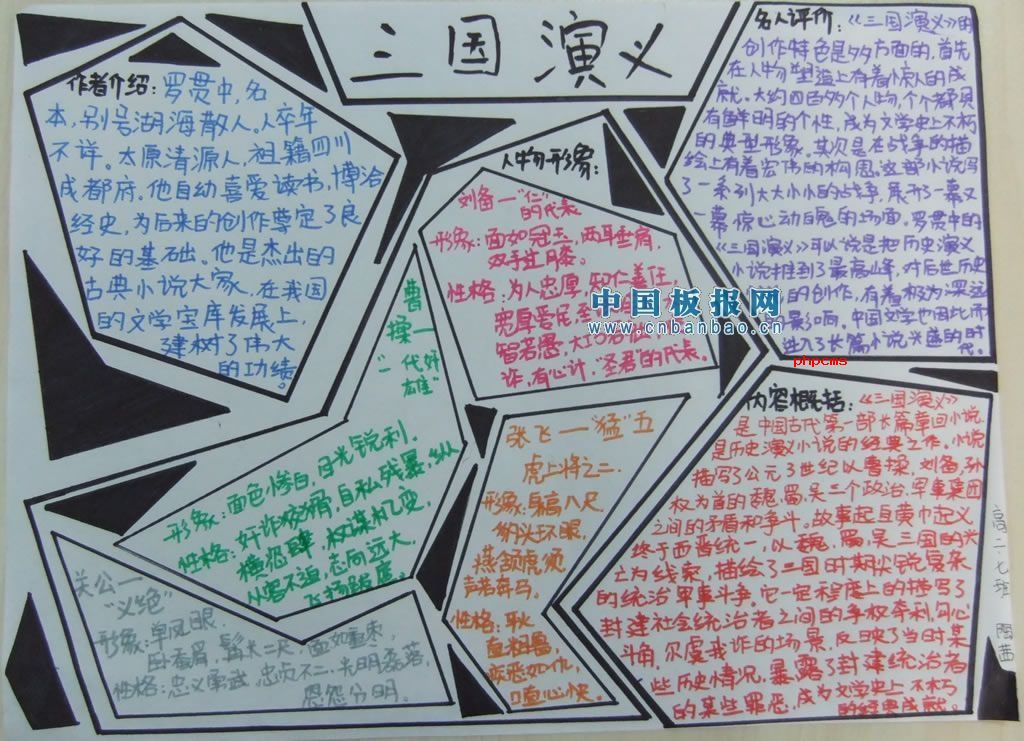 三国演义
作者介绍：罗贯中，名
本，别号湖海散人。人卒年
不详。太原清源人，祖籍四川
成都府。他自幼喜爱读书，博洽
经史，为后来的创作奠定了良
好的基础。他是杰出的
古典小说大家，在我国
的文学宝库发展上，
建树了伟大
的功绩。
人物形象：
刘备一“仁”
的代表
形象：面如冠玉，两耳垂肩，
双手过膝。
性格：为人忠厚，知仁善任，
宽厚爱民，
智若愚，
诈，有心计，“圣君”的代表。
曹操一
“一代奸
雄”
形象：面色惨白，目光锐利，
性格：奸诈狡猾，自私残暴，纵
横恣肆，权谋机变，
从容不迫，志向远大，
飞扬跋扈
张飞一“猛”五
虎上将之二．
形象：身高八尺
豹头环眼，
燕颔虎须
声若奔马．
性格：平火
直粗鲁，
疾恶如仇，
口直心快。
关公一
“义绝”
形象：单凤眼．
卧蚕眉．髯长二尺，面如重枣，
性格：忠义勇武，忠贞不二，光明磊落，
恩怨分明。
名人评价：《三国演义》的
创作特色是多方面的，首先
在人物塑造上有着惊人的成
就。大约四百多个人物，个个都具
有鲜明的个性，成为文学史上不朽
的典型形象。其次是在战争的描
绘上有着宏伟的构思。这部小说写
了一系列大大小小的战争，展开了一幕又
一幕惊心动魄的场面。罗贯中的
《三国演义》可以说是把历史演义
小说推到了最高峰，对后世历史
的创作，有着极为深远
影响。中国文学也因此而
进入了长篇小说兴盛的时
代。
内容概括：《三国演义》
是中国古代第一部长篇章回小说，
是历史演义小说的经典之作。小说
描写了公元3世纪以曹操，刘备，孙
权为首的魏．蜀．吴三个政治．军事集团
之间的矛盾和争斗。故事起自黄巾起义
终于西晋统一，以魏，蜀，吴三国的兴
亡为线索，描绘了三国时期尖锐复杂
的统治军事斗争。它一定程度上的描写了
封建社会统治者之间的争权夺利，勾心
斗角，尔虞我诈的场景，反映了当时某
些历史情况，暴露了封建统治者
的某些罪恶，成为文学史上不朽
的经典成就。
高二七班
中国板报网
www.cnbanbao.cn
phpcms